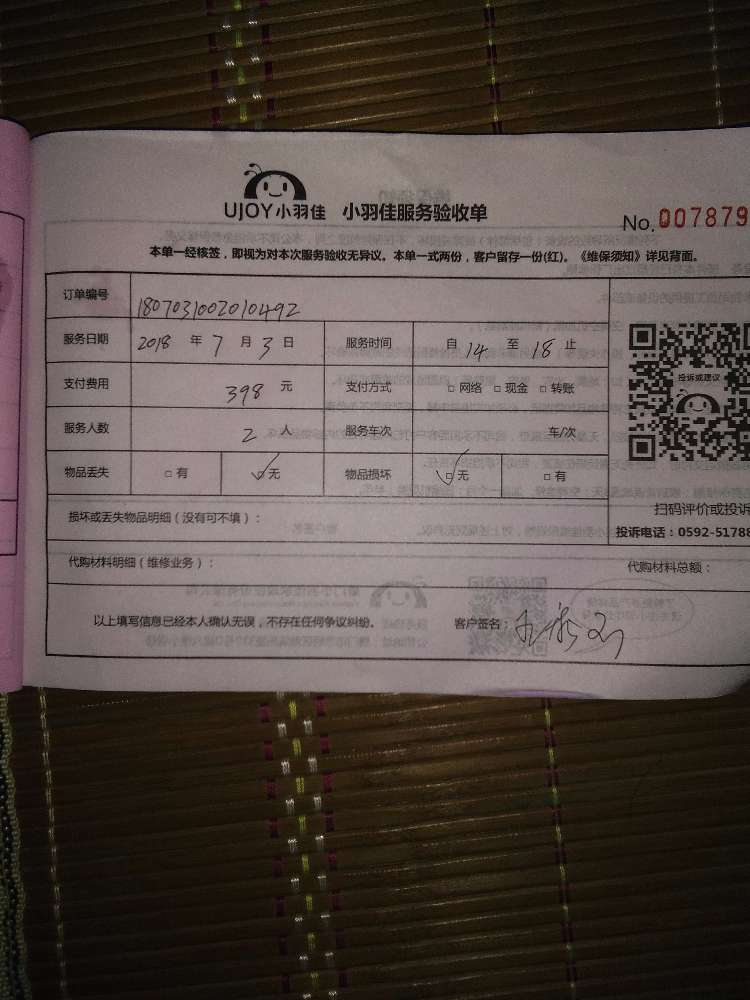 UJOY小羽佳 小羽佳服务验收单
No.007879
本单一经核签，即视为对本次服务验收无异议。本单一式两份，客户留存一份(红)。《维保须知》详见背面。
订单编号 1807031002010492
服务日期 2018 年 7 月 3 日 服务时间 自 14 至 18 止
支付费用 398 元 支付方式 □网络 □现金 □转账
服务人数 2 人 服务车次 车/次
物品丢失 □有 ☑无 物品损坏 ☑无 □有
投诉或建议
扫码评价或投诉
投诉电话：0592-51788
损坏或丢失物品明细（没有可不填）：
代购材料明细（维修业务）： 代购材料总额：
以上填写信息已经本人确认无误，不存在任何争议纠纷。 客户签名：